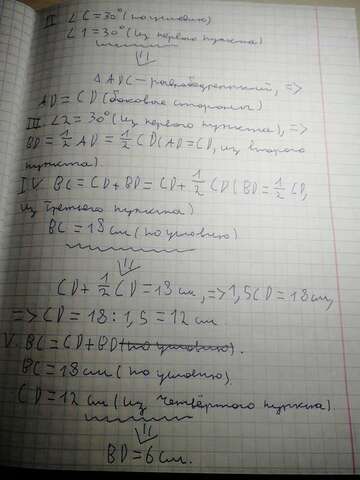 II. ∠C=30° (по условию)
∠1=30° (из первого пункта)
⇓
△ADC – равнобедренный, =>
AD=CD (боковые стороны)
III. ∠2=30° (из первого пункта), =>
BD=1/2 AD=1/2 CD (AD=CD, из второго
пункта)
IV. BC=CD+BD=CD+1/2 CD (BD=1/2 CD,
из третьего пункта)
BC=18 см (по условию)
⇓
CD+1/2 CD=18 см, =>1,5CD=18см,
=> CD=18:1,5=12 см
V. BC=CD+BD (по условию).
BC=18 см (по условию).
CD=12 см (из четвёртого пункта).
⇓
BD=6 см.